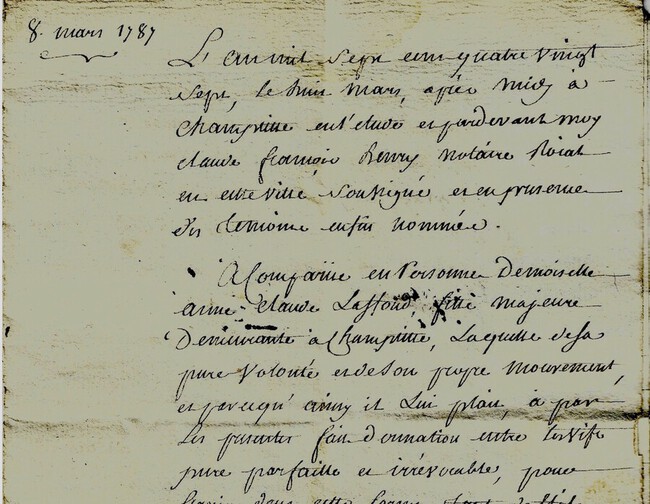 8. mars 1787
L'an mil sept cent quatre vingt
sept, le huit mars, après midy à
Champlitte en l'étude et pardevant moy
claude françois henry notaire Roial
en cette ville soussigné et en presence
des temoins enfin nommés.
A Comparüe en Personne Demoiselle
anne claude Laffond, fille majeure
Demeurante à Champlitte, Laquelle de sa
pure volonté et de son propre mouvement,
et parcequ' ainsy il Lui plait, à par
Les presentes fait Donnation entre Les vifs
pure parfaitte et irrévocable, pour
dans cette forme